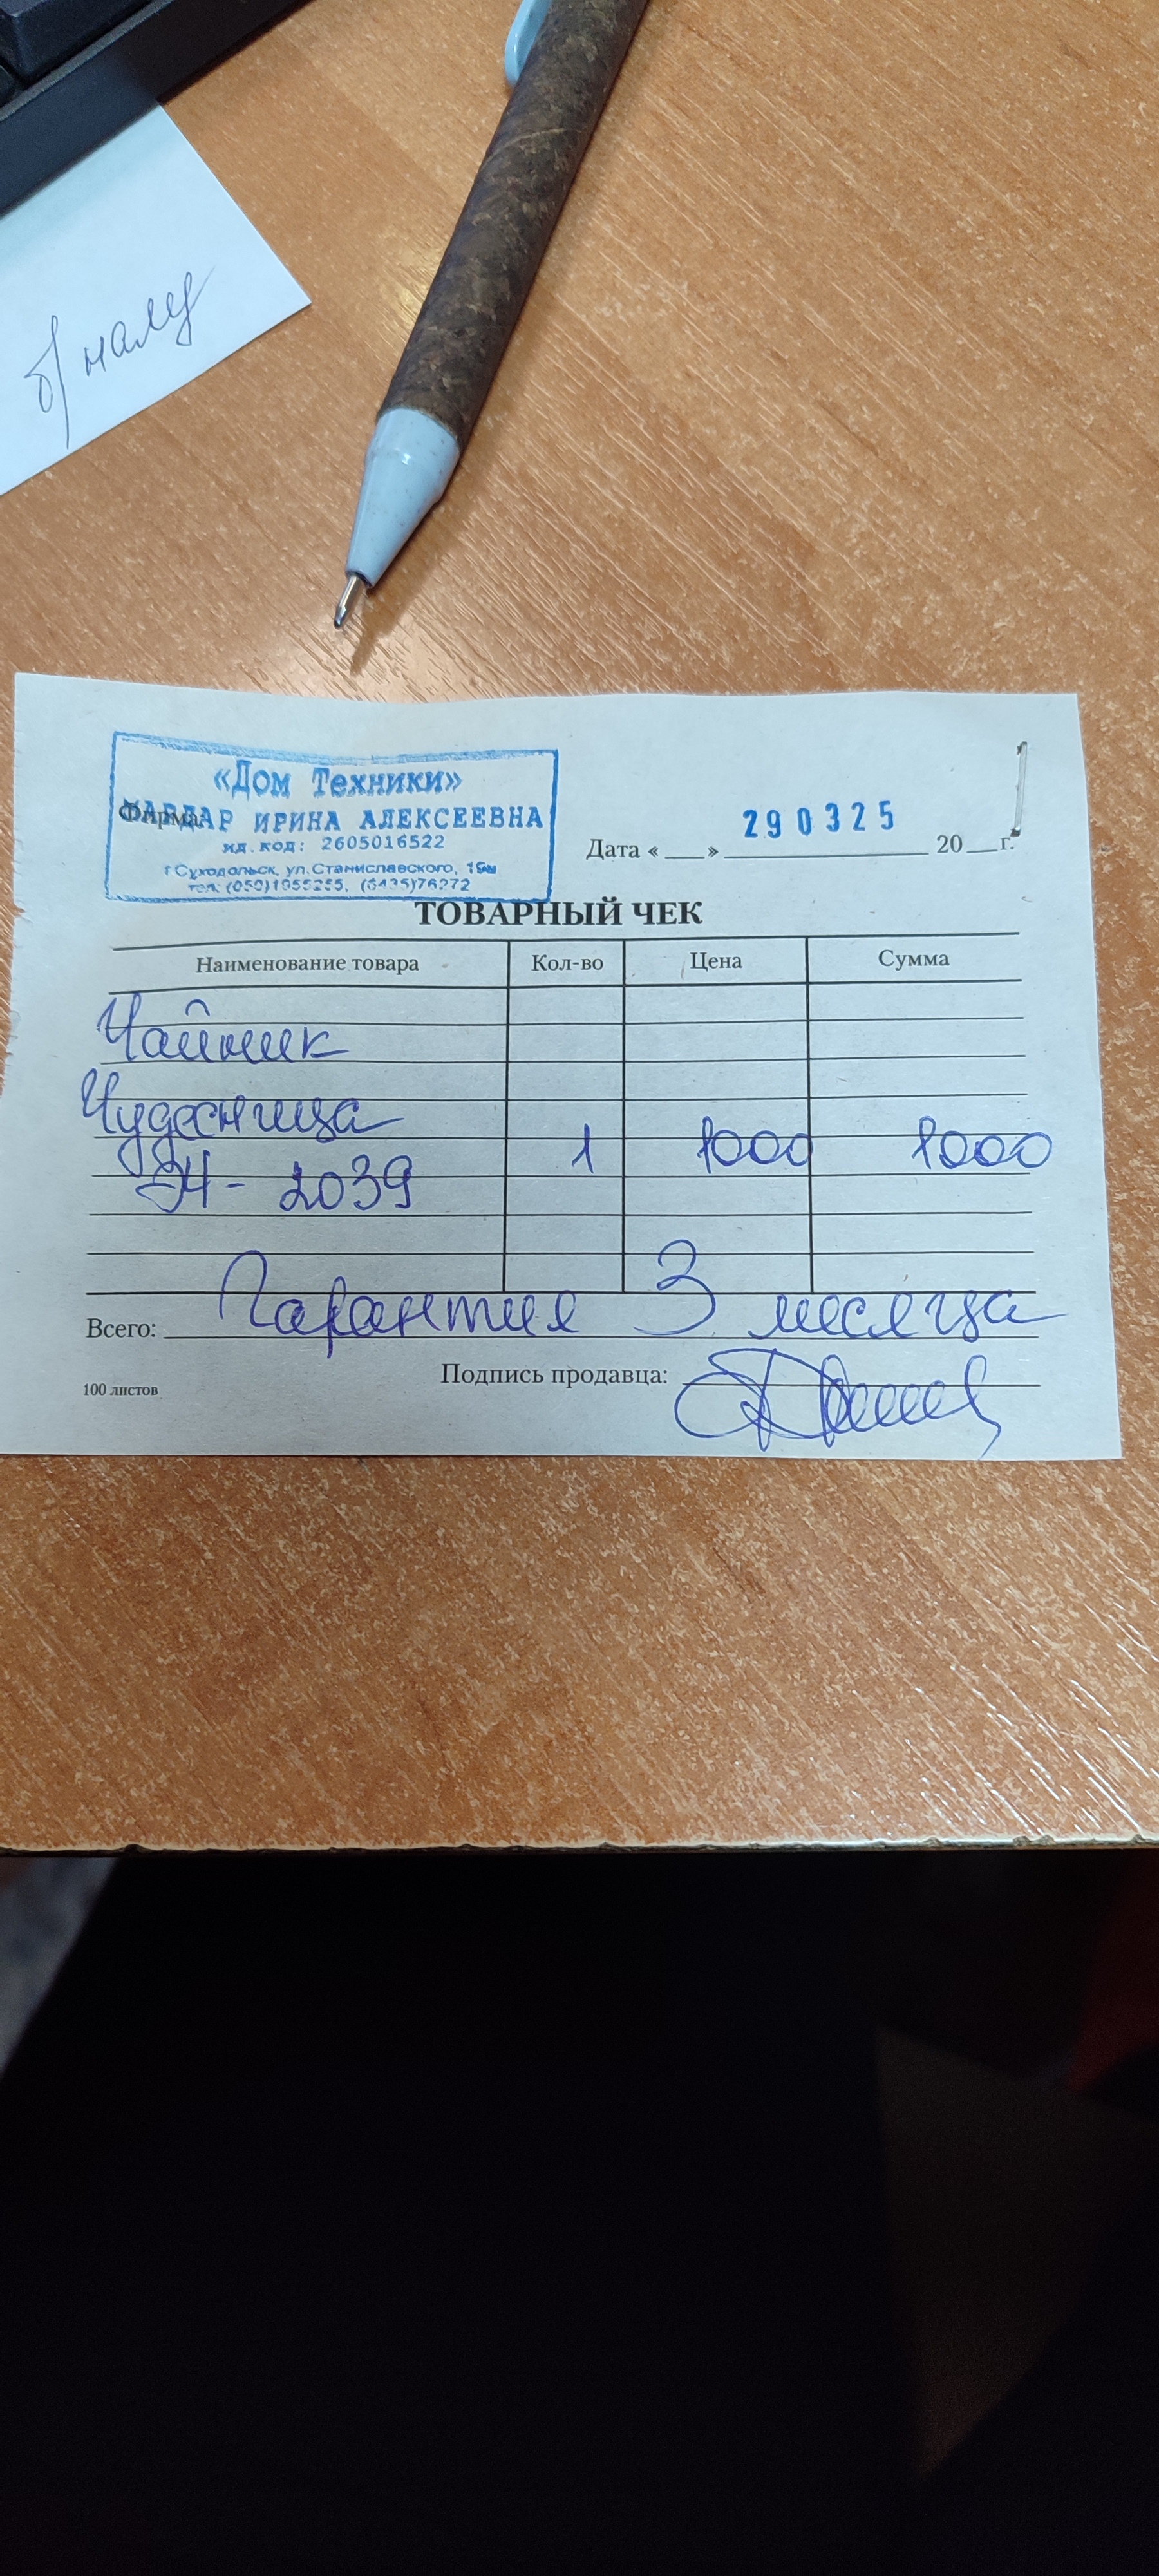 б/налу
«Дом Техники»
Фирма
ИРИНА АЛЕКСЕЕВНА
ид.код: 2605016522
г Суходольск, ул.Станиславского,
тел: (050)1955255, (6435)76272
Дата « » 290325 20 г.
ТОВАРНЫЙ ЧЕК
Наименование товара Кол-во Цена Сумма
Чайник
Чудесница
ЭЧ- 2039 1 1000 1000
Всего: Гарантия 3 месяца
100 листов Подпись продавца: